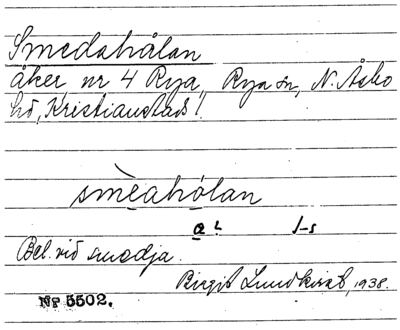 Smedahålan
åker nr 4 Rya, Rya sn, N. Åsbo
hd, Kristianstads l.
smèahólan
a L l-s
Bel. vid smedja.
Birgit 1938.
Nr 5502.